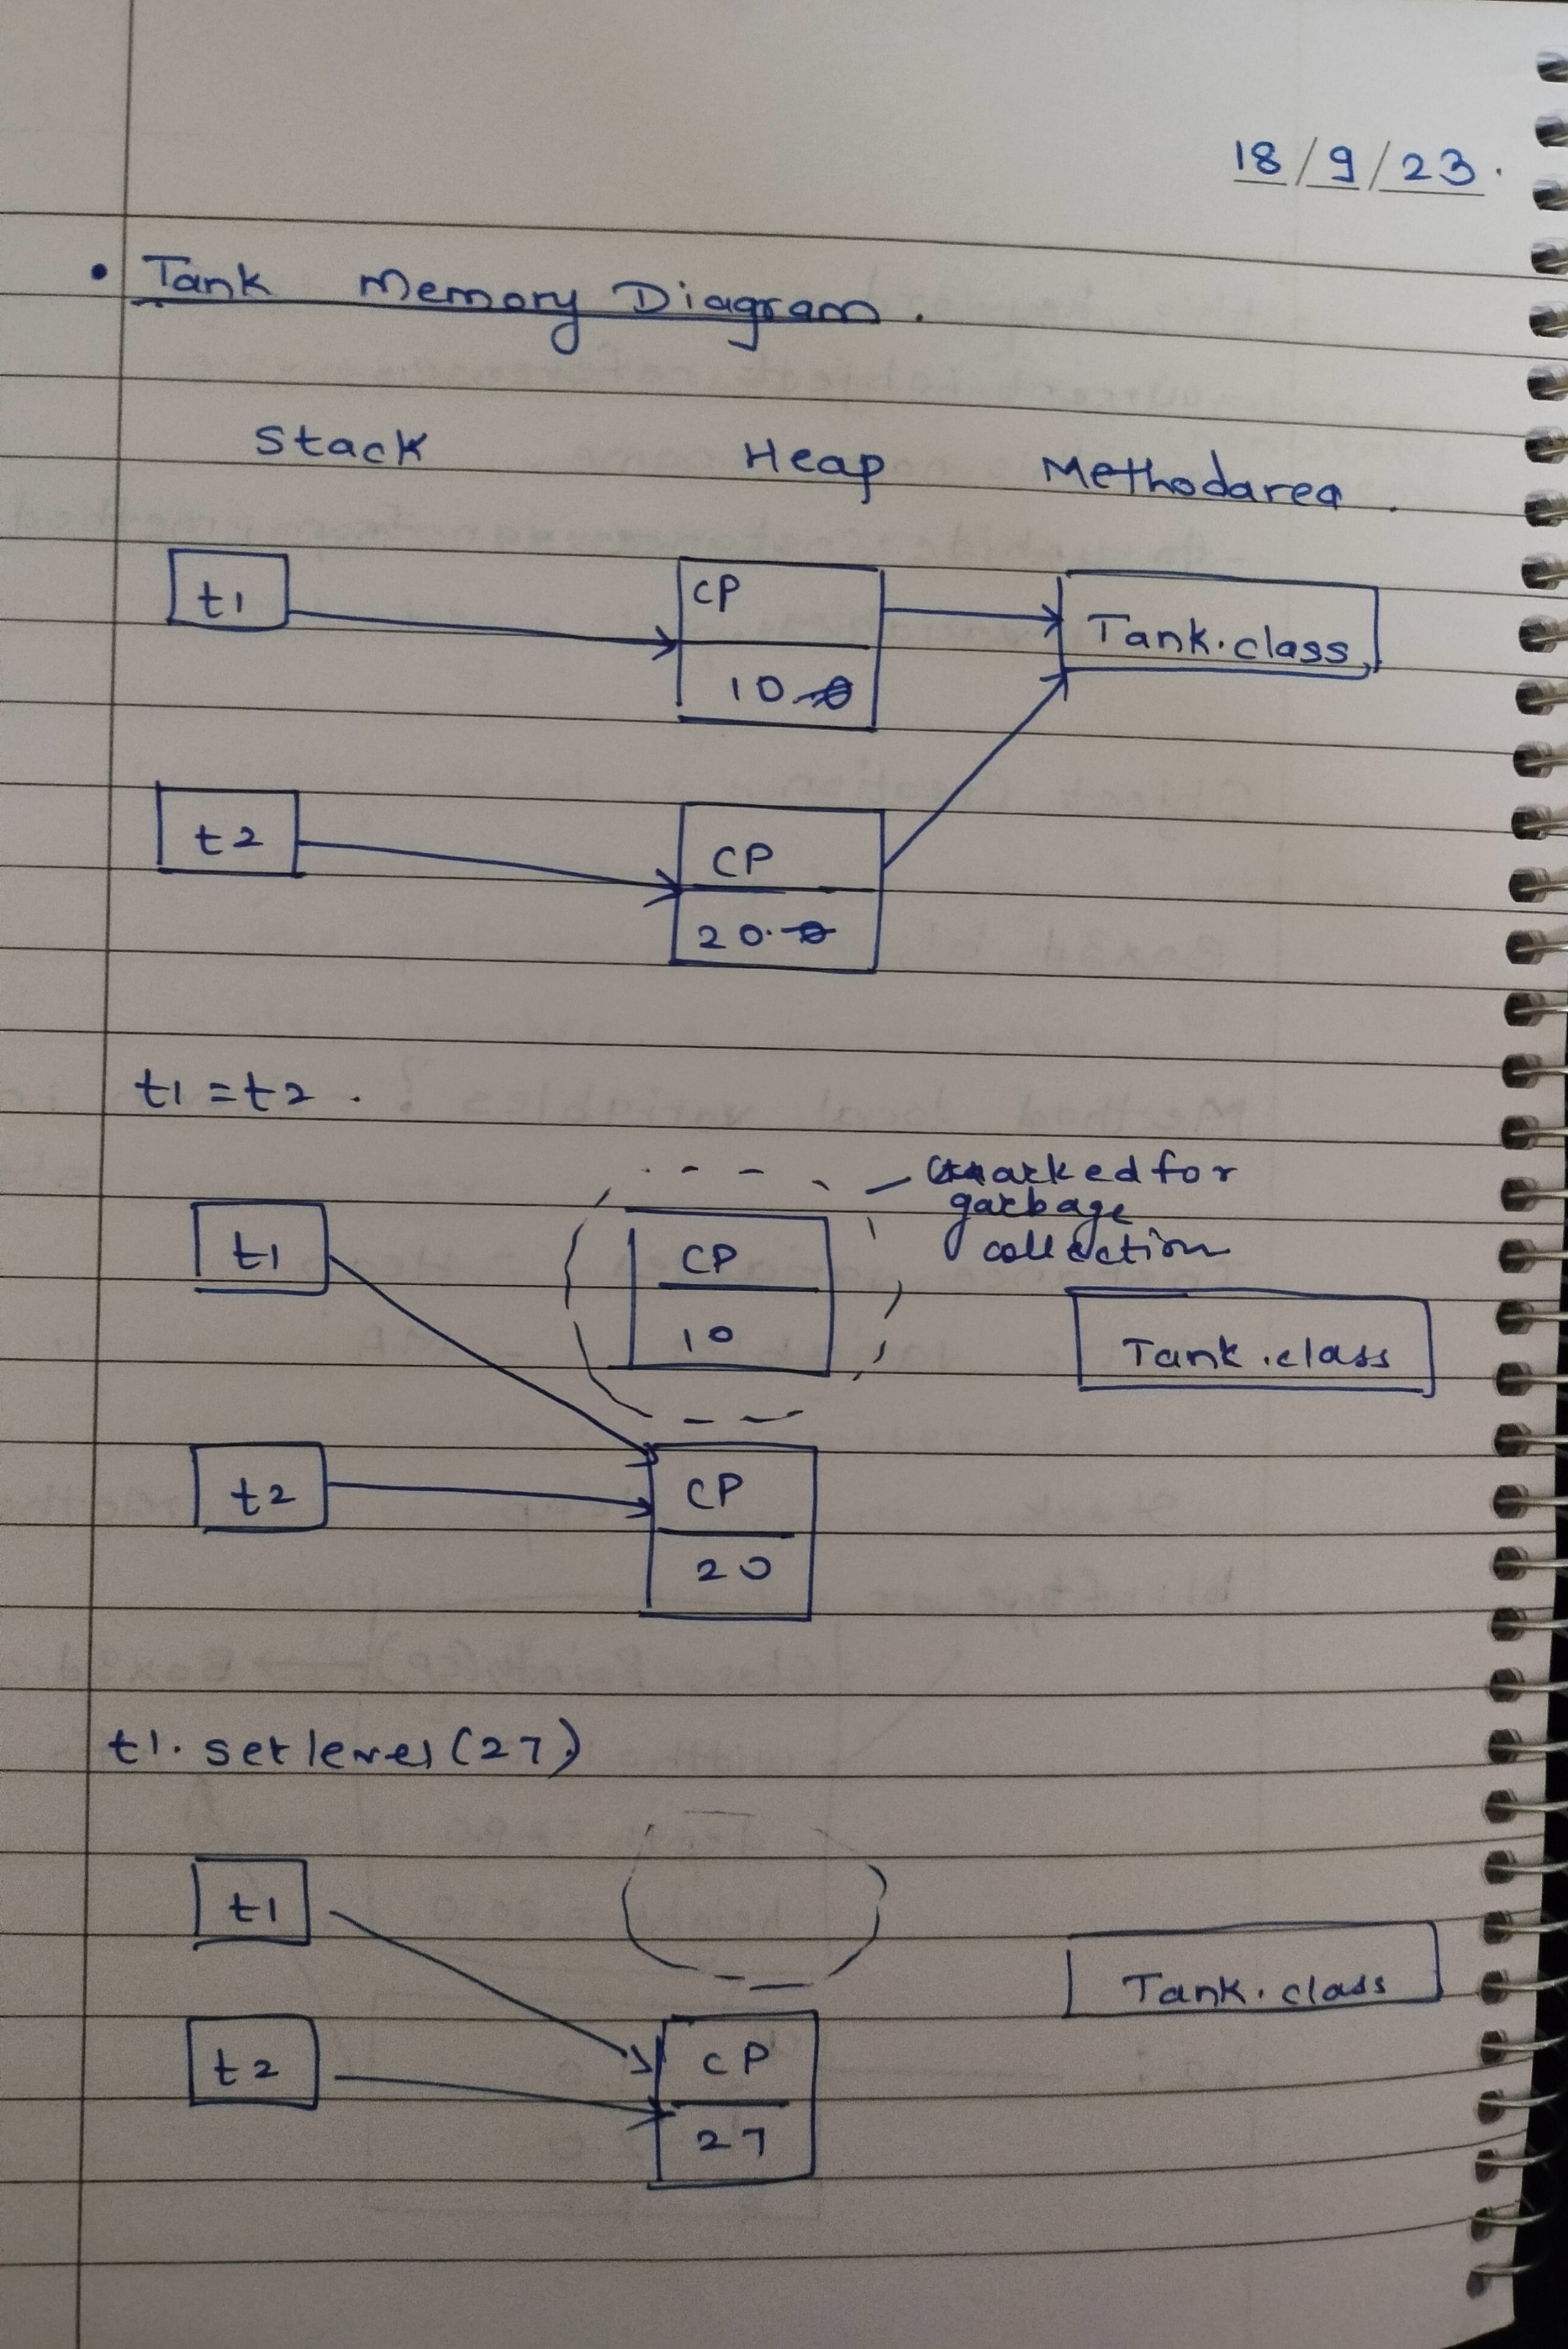 18/9/23.
• Tank Memory Diagram.
Stack Heap Methodarea.
t1 CP Tank.class
10
t2 CP
20.
t1 = t2.
marked for
garbage
collection
t1 CP
10
Tank.class
t2 CP
20
t1. setlevel(27)
t1
Tank.class
t2 CP
27